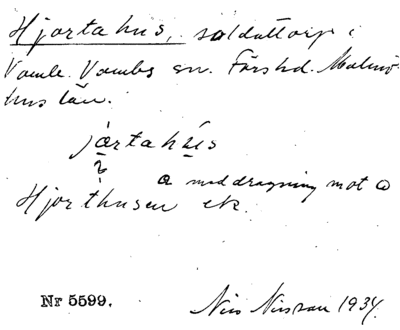 Hjortahus, soldattorp i
Vomb. Vombs sn. Färs hd. Malmö-
hus län.
jɑrtahús
ɑ med dragning mot
Hjorthusen ek.
Nr 5599.
Nils Nilsson 1934.